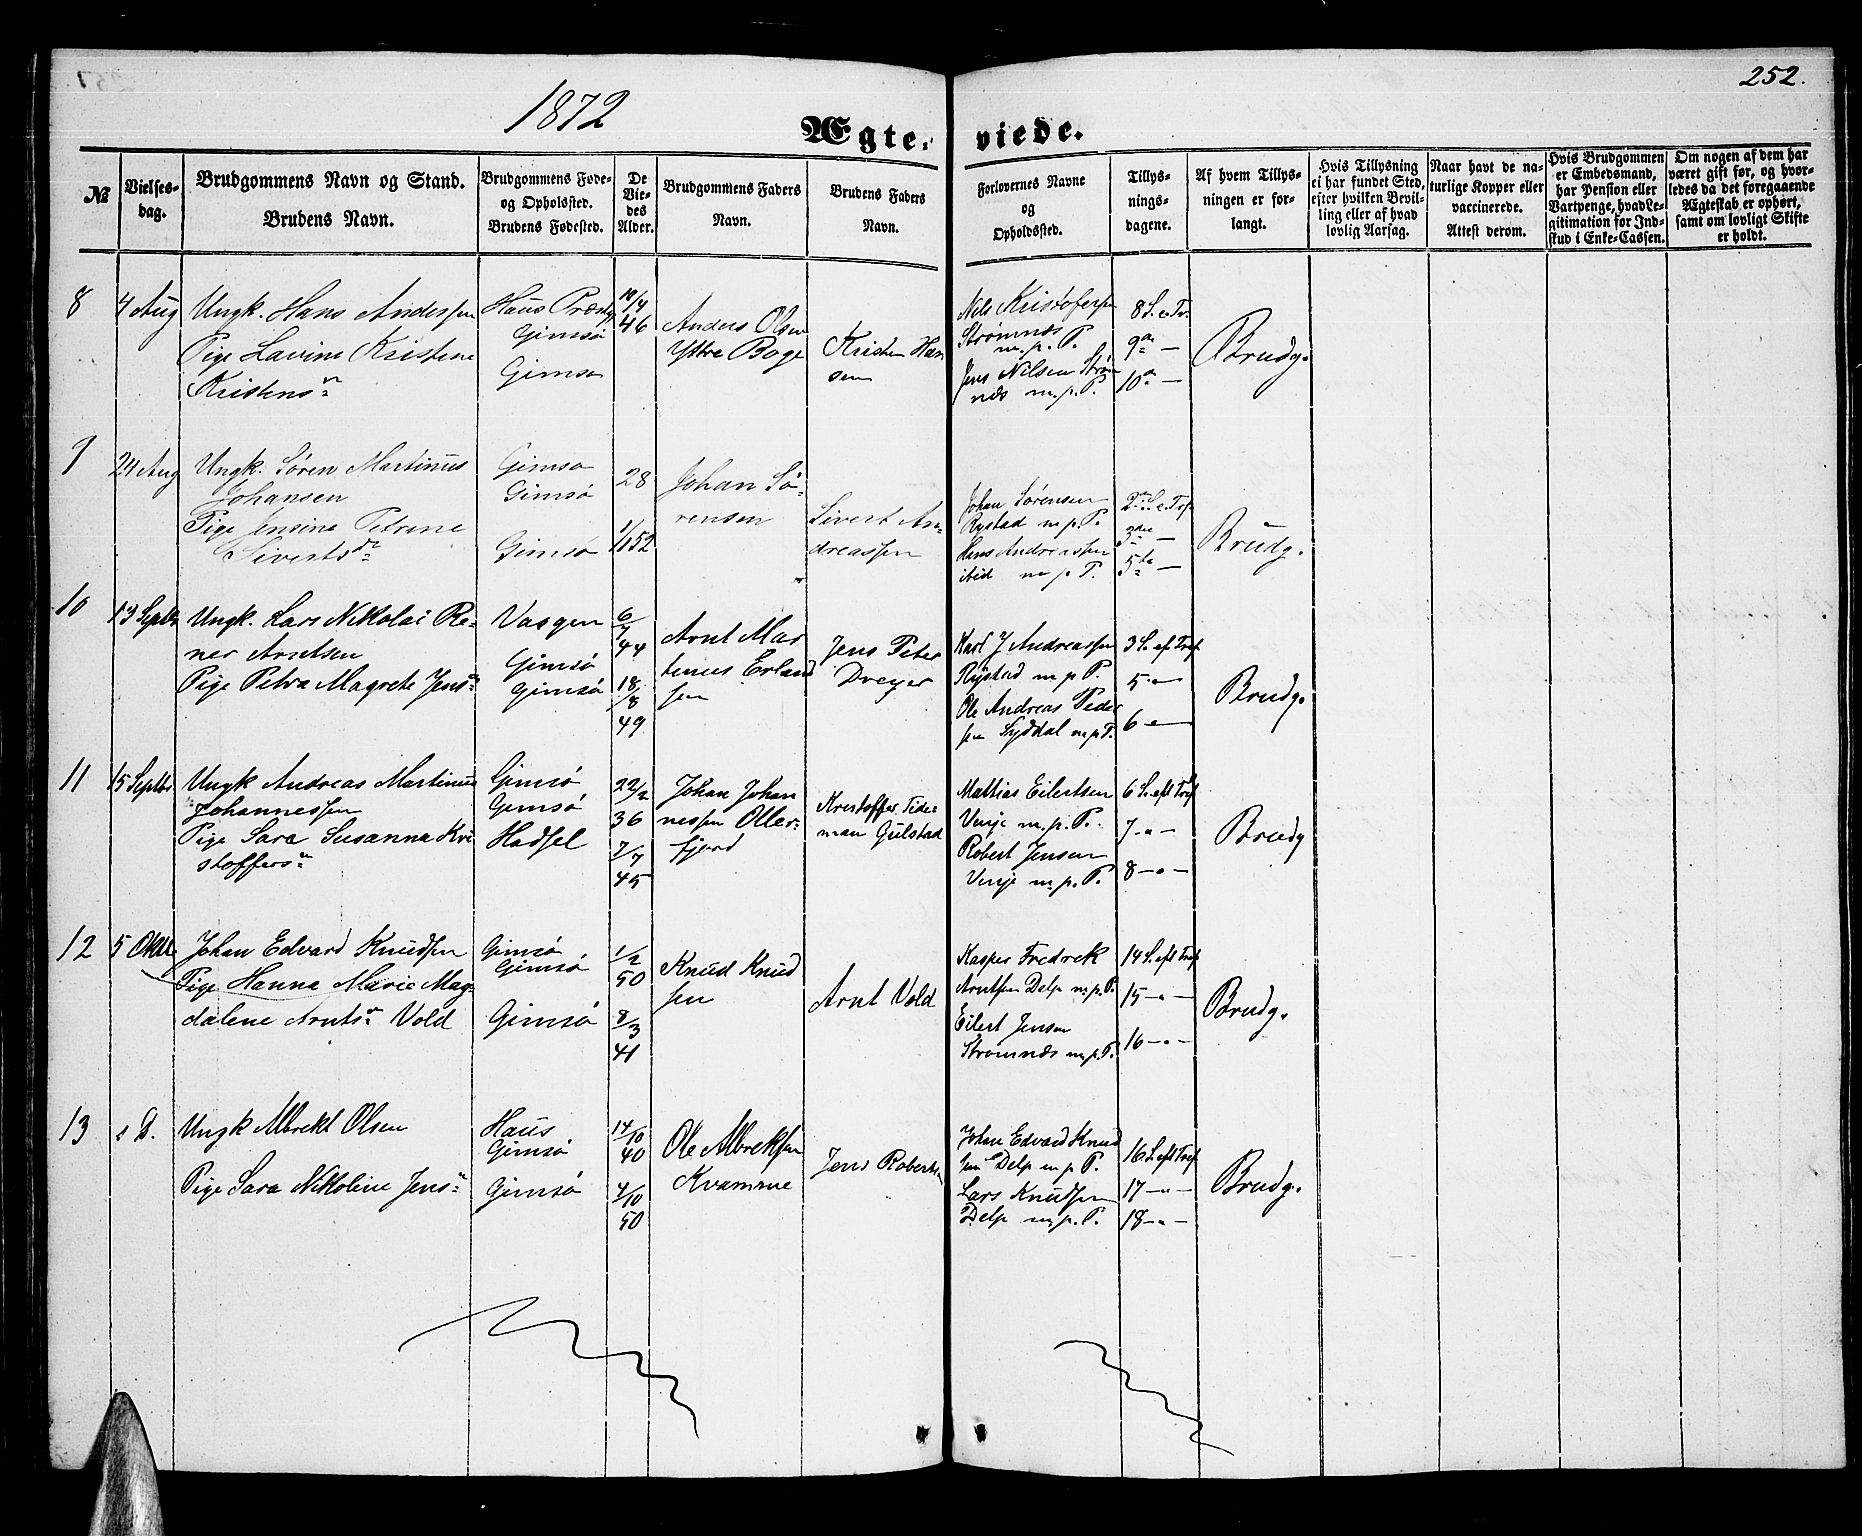 252.
1872
Ægte. viede.
№
Vielses-
dag.
Brudgommens Navn og Stand.
Brudens Navn.
Brudgommens Føde-
og Opholdssted.
Brudens Fødested.
De
Vie-
des
Alder.
Brudgommens Faders
Navn.
Brudens Faders
Navn.
Forlovernes Navne
og
Opholdssted.
Tillys-
nings-
dagene.
Af hvem Tillys-
ningen er for-
langt.
Hvis Tillysning
ei har fundet Sted,
efter hvilken Bevil-
ling eller af hvad
lovlig Aarsag.
Naar havt de na-
turlige Kopper eller
vaccinerede.
Attest derom.
Hvis Brudgommen
er Embedsmand,
har Pension eller
Vartpenge, hvad Le-
gitimation for Ind-
skud i Enke-Cassen.
Om nogen af dem har
været gift før, og hvor-
ledes da det foregaaende
Ægteskab er ophørt,
samt om lovligt Skifte
er holdt.
8
4 Aug
Ungk. Hans Anderssen
Pige Lavine Kristine
Kristensn
Haus Præstg
Gimsø
Gimsø
10/4
46
Anders Olsen
Yttre Boge
Kristen Han
sen
Nils Kristofersen
Strømnæs
m. p. P.
Jens Nilsen Strøm
næs m. p. P.
8 S. e. Tr.
9de —
10de —
Brudg.
9
24 Aug
Ungk. Søren Martinus
Johansen
Pige Jensine Petrine
Sivertsdtr
Gimsø
Gimsø
Gimsø
28
1/1 52
Johan Sø-
rensen
Sivert An-
dreassen
Johan Sørensen
Rystad m. p. P.
Hans Andreassen
ibid m. p. P.
2den S. e. Tr.
3die —
5te —
Brudg.
10
13 Septbr
Ungk. Lars Nikolai Re-
ner Arntsen
Pige Petra Magrete Jensn
Vaagen
Gimsø
Gimsø
6/7
44
18/8
49
Arnt Mar
tinus Erland
sen
Jens Peter
Dreyer
Karl J Andreassen
Rystad m. p. P.
Ole Andreas Peder
sen Syddal m. p. P.
3 S. eft Tref
5 - " -
6 - " -
Brudg.
11
15 Septbr
Ungk Andreas Martinus
Johannessen
Pige Sara Susanna Kri
stoffersn
Gimsø
Gimsø
Hadsel
22/2
36
7/7
45
Johan Johan
nessen Oller-
fjord
Kristoffer Tide
man Gulstad
Mattias Eilertsen
Venje m. p. P.
Robert Jensen
Venje m. p. P.
6 S. eft Tref
7 - " -
8 - " -
Brudg
12
5 Oktb
Johan Edvard Knudsen
Pige Hanna Marie Mag-
dalene Arntsn Vold
Gimsø
Gimsø
Gimsø
1/2
50
8/3
41
Knud Knud
sen
Arnt Vold
Kasper Fredrek
Arntsen Delp m. p. P.
Eilert Jensen
Strømnæs m. p. P.
14 S. eft Tref
15 - " -
16 - " -
Brudg.
13
s D.
Ungk Albrekt Olsen
Pige Sara Nikoline Jensn
Haus
Gimsø
Gimsø
14/10
40
4/10
50
Ole Albreksen
Kvamme
Jens Roberts
Johan Edvard Knud
sen Delp m. p. P.
Lars Knudsen
Delp m. p. P.
16 S. eft Tref
17 - " -
18 - " -
Brudg.